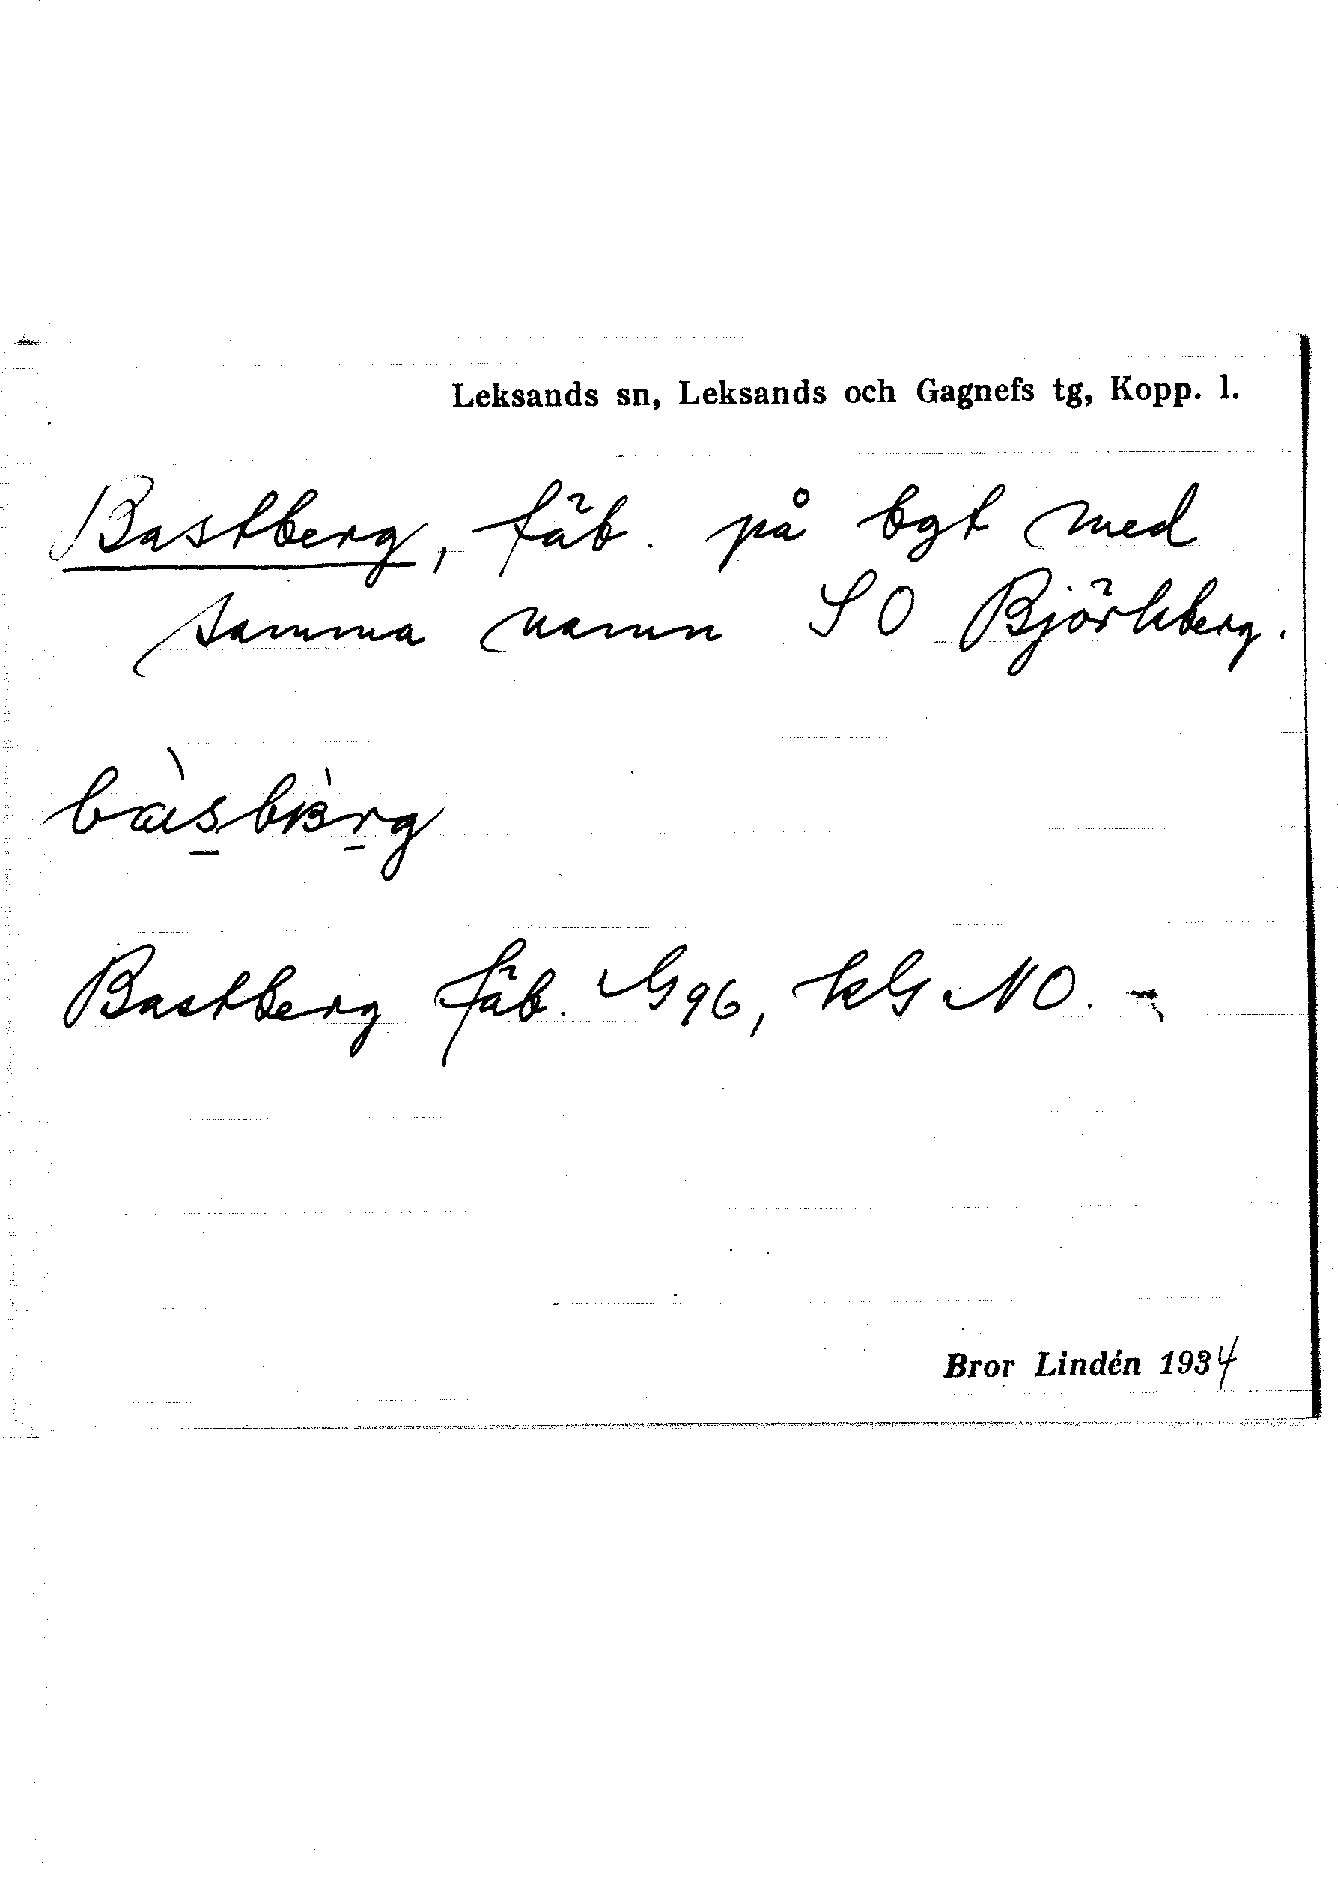 Leksands sn, Leksands och Gagnefs tg, Kopp. l.
Bastberg, fäb. på bgt med
samma namn SO Björkberg.
Bastberg fäb. G96, kG NO.
Bror Lindén 1934